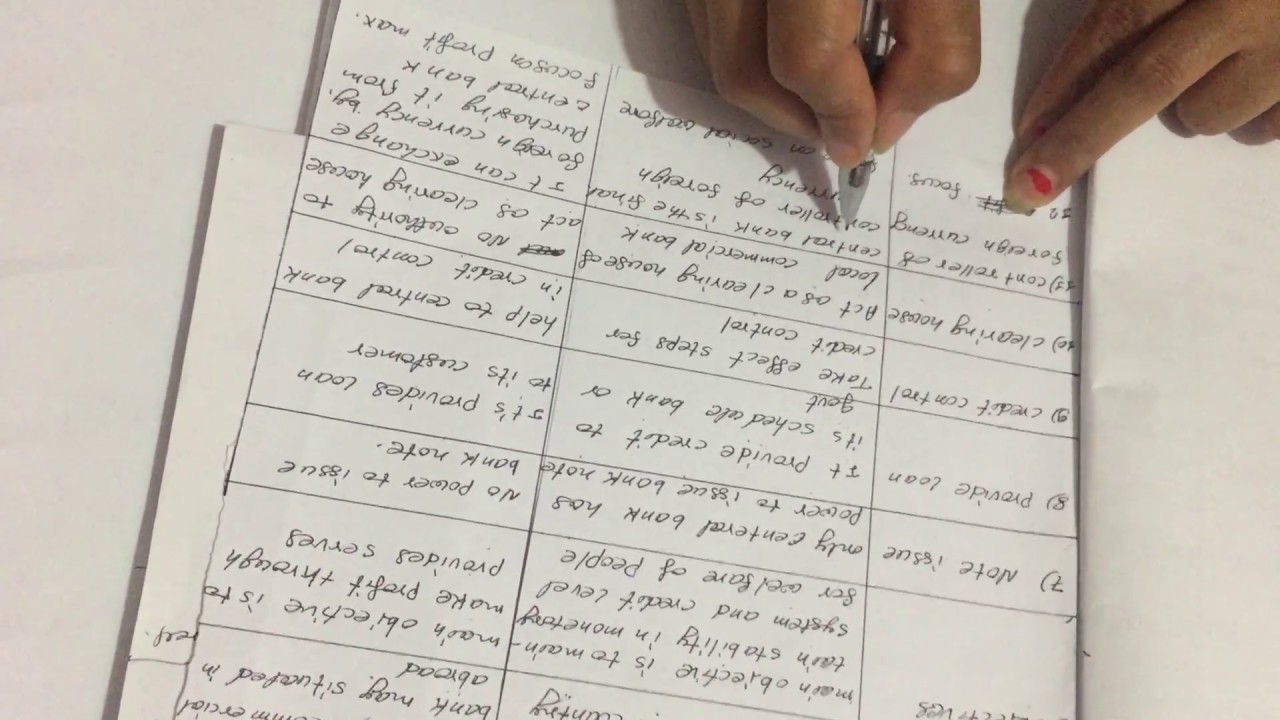 ectives
main objective is to main-
tain stability in monetary
system and credit level
for welfare of people
bank may situated in
abroad
main objective is to
make profit through
provides serves
7) Note issue
only centeral bank has
power to issue bank note
No power to issue
bank note.
8) Provide loan
It provide credit to
it's schedule bank or
govt
It's provides loan
to its customer
9) credit control
Take effect steps for
credit control
help to central bank
in credit control
10) clearing house
Act as a clearing house of
local commercial bank
No authority to
act as clearing house
11) controller of
foreign currency
central bank is the final
controller of foreign
currency
It can exchange
foreign currency by
purchasing it from
central bank
12) focus.
on social welfare
focus on profit max.